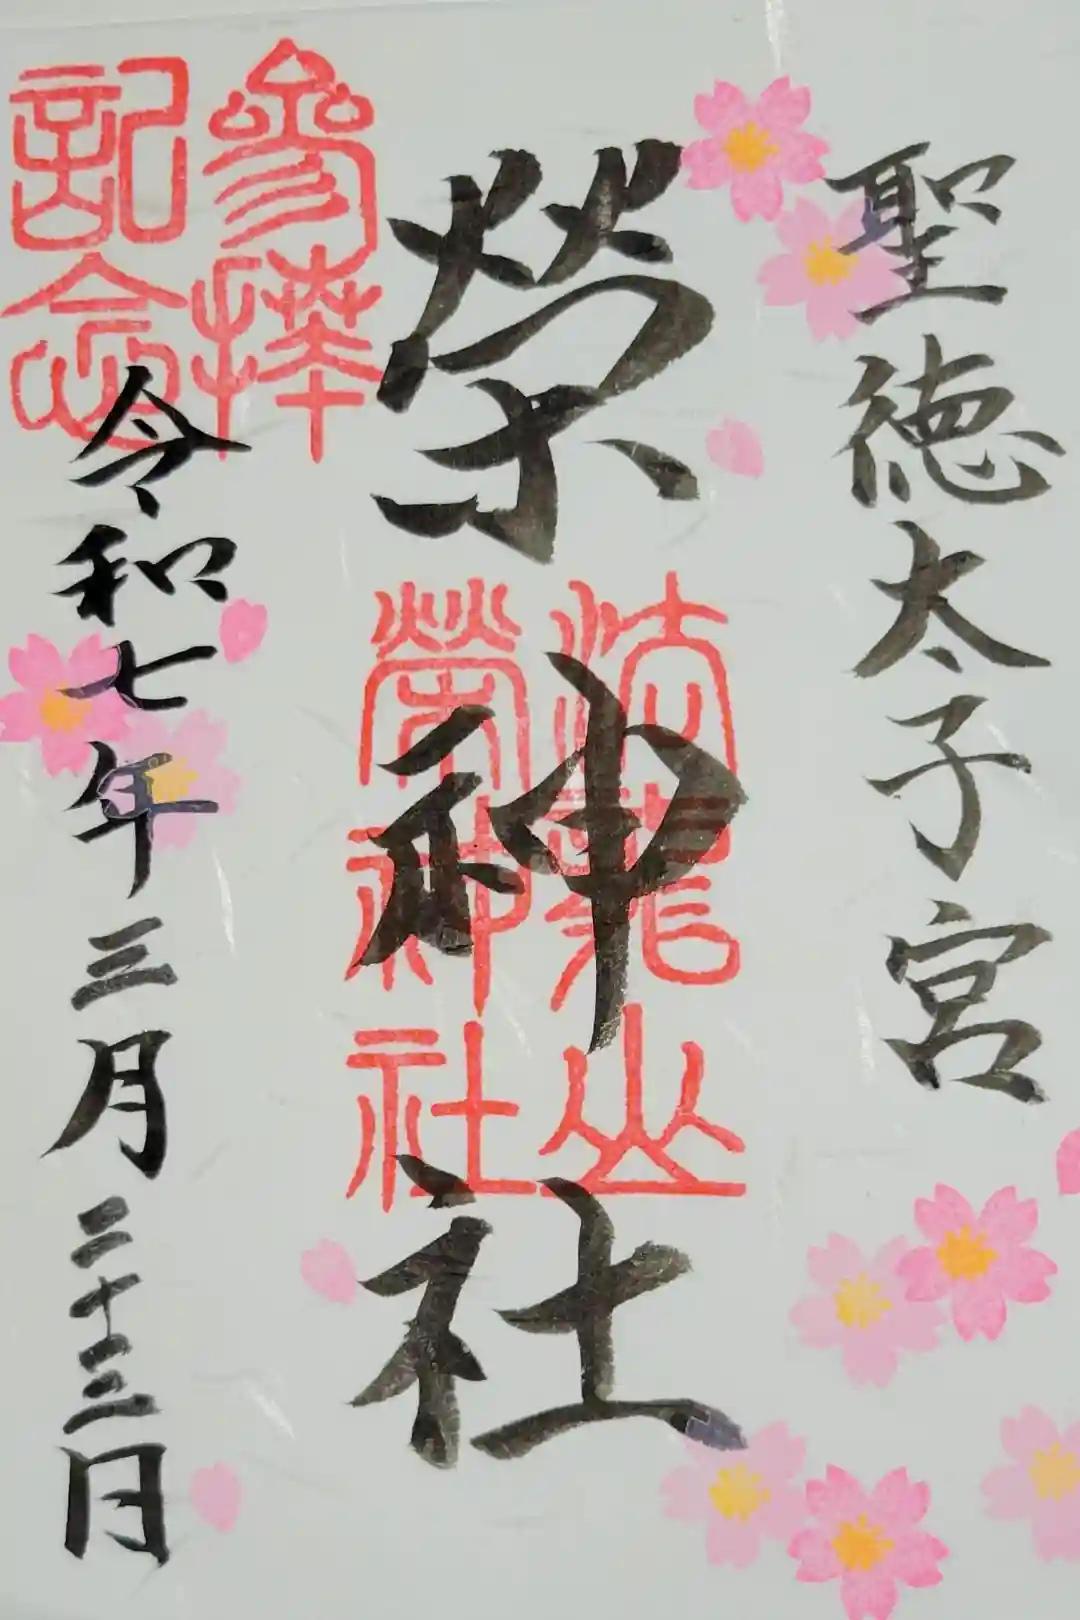 聖徳太子宮
榮神社
法龍山
榮神社
参拝
記念
令和七年三月二十三日